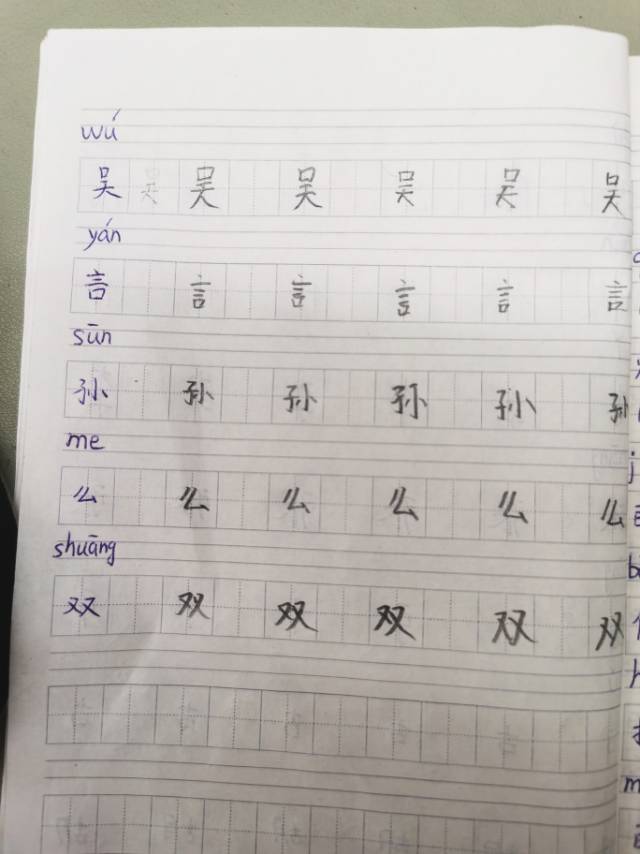 wú
吴 吴 吴 吴 吴 吴 吴
yán
言 言 言 言 言 言
sūn
孙 孙 孙 孙 孙 孙
me
么 么 么 么 么 么
shuāng
双 双 双 双 双 双